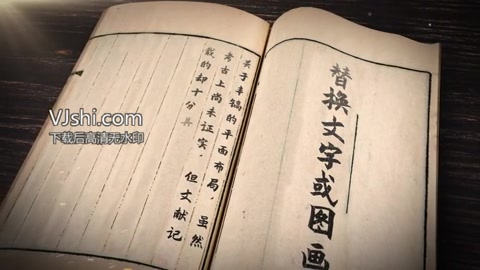 替换文字或图画
关于丰镐的平面布局，虽然
考古上尚未证实，但文献记
载的却十分具
VJshi.com
下载后高清无水印